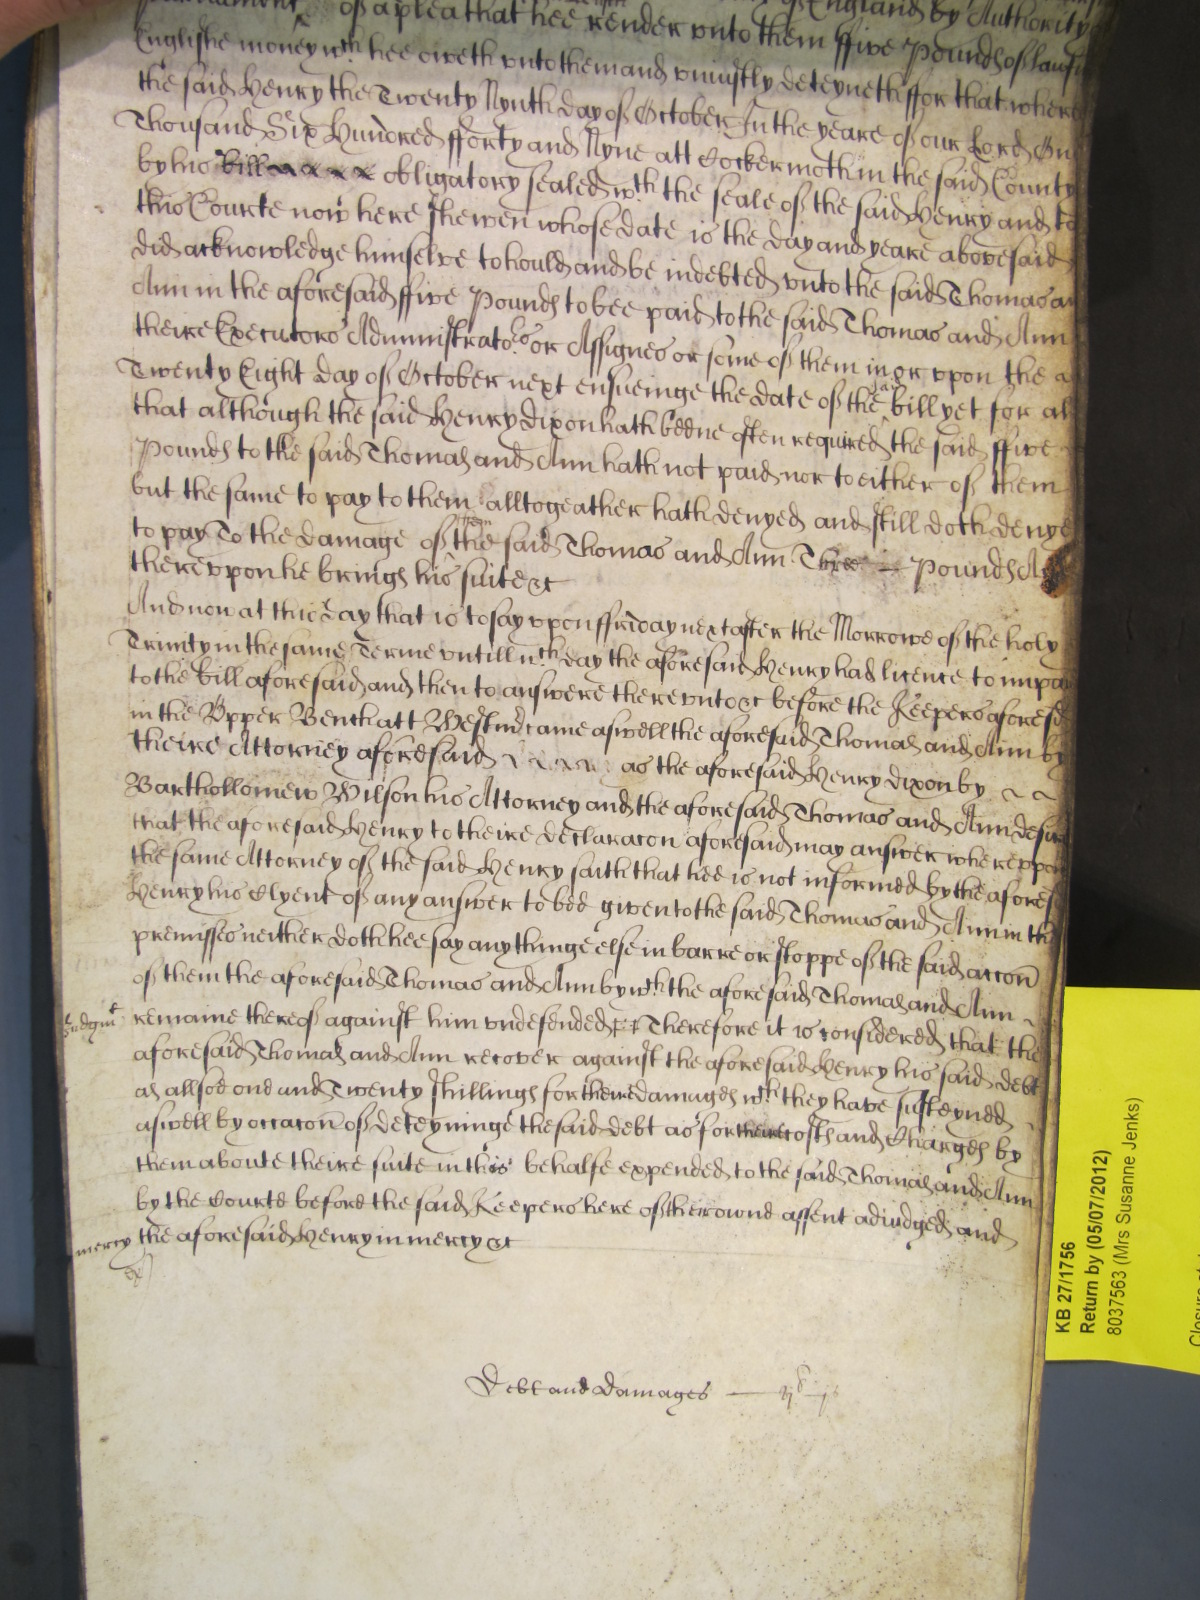 of a plea that hee render vnto them ffive Pounds of lawfu
Englishe money wch hee oweth vnto them and vniustly deteyneth ffor that where
the said Henry the Twenty Nynth day of October In the yeare of our Lord One
Thousand Six Hundred fforty and Nyne att Cockermoth in the said County
by his bill obligatory sealed wth the seale of the said Henry and to
this Courte now here shewen whose date is the day and yeare abovesaid
did acknowledge himselve to hould and be indebted vnto the said Thomas an
Ann in the aforesaid ffive Pounds to bee paid to the said Thomas and Ann
theire Executors Administrators or Assignes or some of them in or vpon the
Twenty Eight day of October next ensueinge the date of the said bill yet for al
that although the said Henry Dixon hath beene often required the said ffive
Pounds to the said Thomas and Ann hath not paid nor to either of them
but the same to pay to them alltogeather hath denyed and still doth denye
to pay To the damage of them the said Thomas and Ann Three Pounds A
therevpon he brings his suite &c
And now at this day that is to say vpon ffriday next after the Morrowe of the holy
Trinity in the same Terme vntill wch day the aforesaid Henry had licence to impa
to the bill aforesaid and then to answere therevnto &c before the Keepers aforesd
in the Vpper Bench att Westmr came aswell the aforesaid Thomas and Ann by
theire Attorney aforesaid as the aforesaid Henry Dixon by
Barthollomew Wilson his Attorney and the aforesaid Thomas and Ann desire
that the aforesaid Henry to theire declaracon aforesaid may answer wherevpon
the same Attorney of the said Henry saith that hee is not informed by the afores
Henry his Clyent of any answer to bee given to the said Thomas and Ann in the
premisses neither doth hee say any thinge else in barre or stoppe of the said accon
of them the aforesaid Thomas and Ann by wch the aforesaid Thomas and Ann
Iudgmt remaine thereof against him vndefended &c Therefore it is considered that the
aforesaid Thomas and Ann recover against the aforesaid Henry his said debt
as allsoe one and Twenty shillings for theire damages wch they have susteyned
aswell by occacon of deteyninge the said debt as for theire costs and Charges by
them aboute theire suite in this behalfe expended to the said Thomas and Ann
by the Courte before the said Keepers here of their owne assent adiudged and
mercy the aforesaid Henry in mercy &c
Debt and Damages
KB 27/1756
Return by (05/07/2012)
8037563 (Mrs Susanne Jenks)